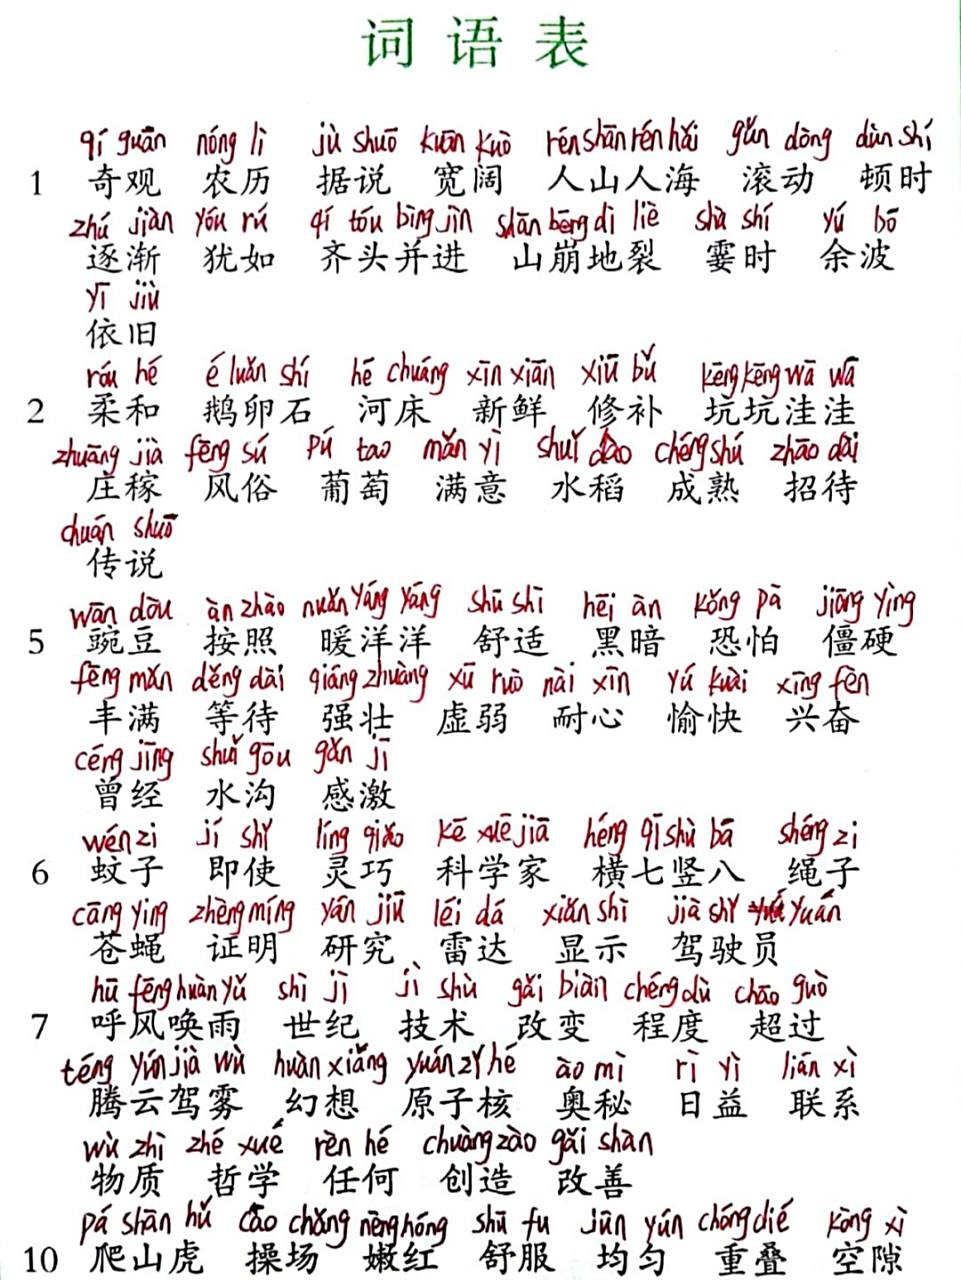 词语表
qí guān nóng lì jù shuō kuān kuò rén shān rén hǎi gǔn dòng dùn shí
1 奇观 农历 据说 宽阔 人山人海 滚动 顿时
zhú jiàn yóu rú qí tóu bìng jìn shān bēng dì liè shà shí yú bō
逐渐 犹如 齐头并进 山崩地裂 霎时 余波
yī jiù
依旧
róu hé é luǎn shí hé chuáng xīn xiān xiū bǔ kēng kēng wā wā
2 柔和 鹅卵石 河床 新鲜 修补 坑坑洼洼
zhuāng jià fēng sú pú tao mǎn yì shuǐ dào chéng shú zhāo dài
庄稼 风俗 葡萄 满意 水稻 成熟 招待
chuán shuō
传说
wān dòu àn zhào nuǎn yáng yáng shū shì hēi àn kǒng pà jiāng yìng
5 豌豆 按照 暖洋洋 舒适 黑暗 恐怕 僵硬
fēng mǎn děng dài qiáng zhuàng xū ruò nài xīn yú kuài xīng fèn
丰满 等待 强壮 虚弱 耐心 愉快 兴奋
céng jīng shuǐ gōu gǎn jī
曾经 水沟 感激
wén zi jí shǐ líng qiǎo kē xuē jiā héng qī shù bā shéng zi
6 蚊子 即使 灵巧 科学家 横七竖八 绳子
cāng ying zhèng míng yán jiū léi dá xiǎn shì jià shǐ yuán
苍蝇 证明 研究 雷达 显示 驾驶员
hū fēng huàn yǔ shì jì jì shù gǎi biàn chéng dù chāo guò
7 呼风唤雨 世纪 技术 改变 程度 超过
téng yún jià wù huàn xiǎng yuán zǐ hé ào mì rì yì lián xì
腾云驾雾 幻想 原子核 奥秘 日益 联系
wù zhì zhé xué rèn hé chuàng zào gǎi shàn
物质 哲学 任何 创造 改善
pá shān hǔ cāo chǎng nèng hóng shū fu jūn yún chóng dié kòng xì
10 爬山虎 操场 嫩红 舒服 均匀 重叠 空隙